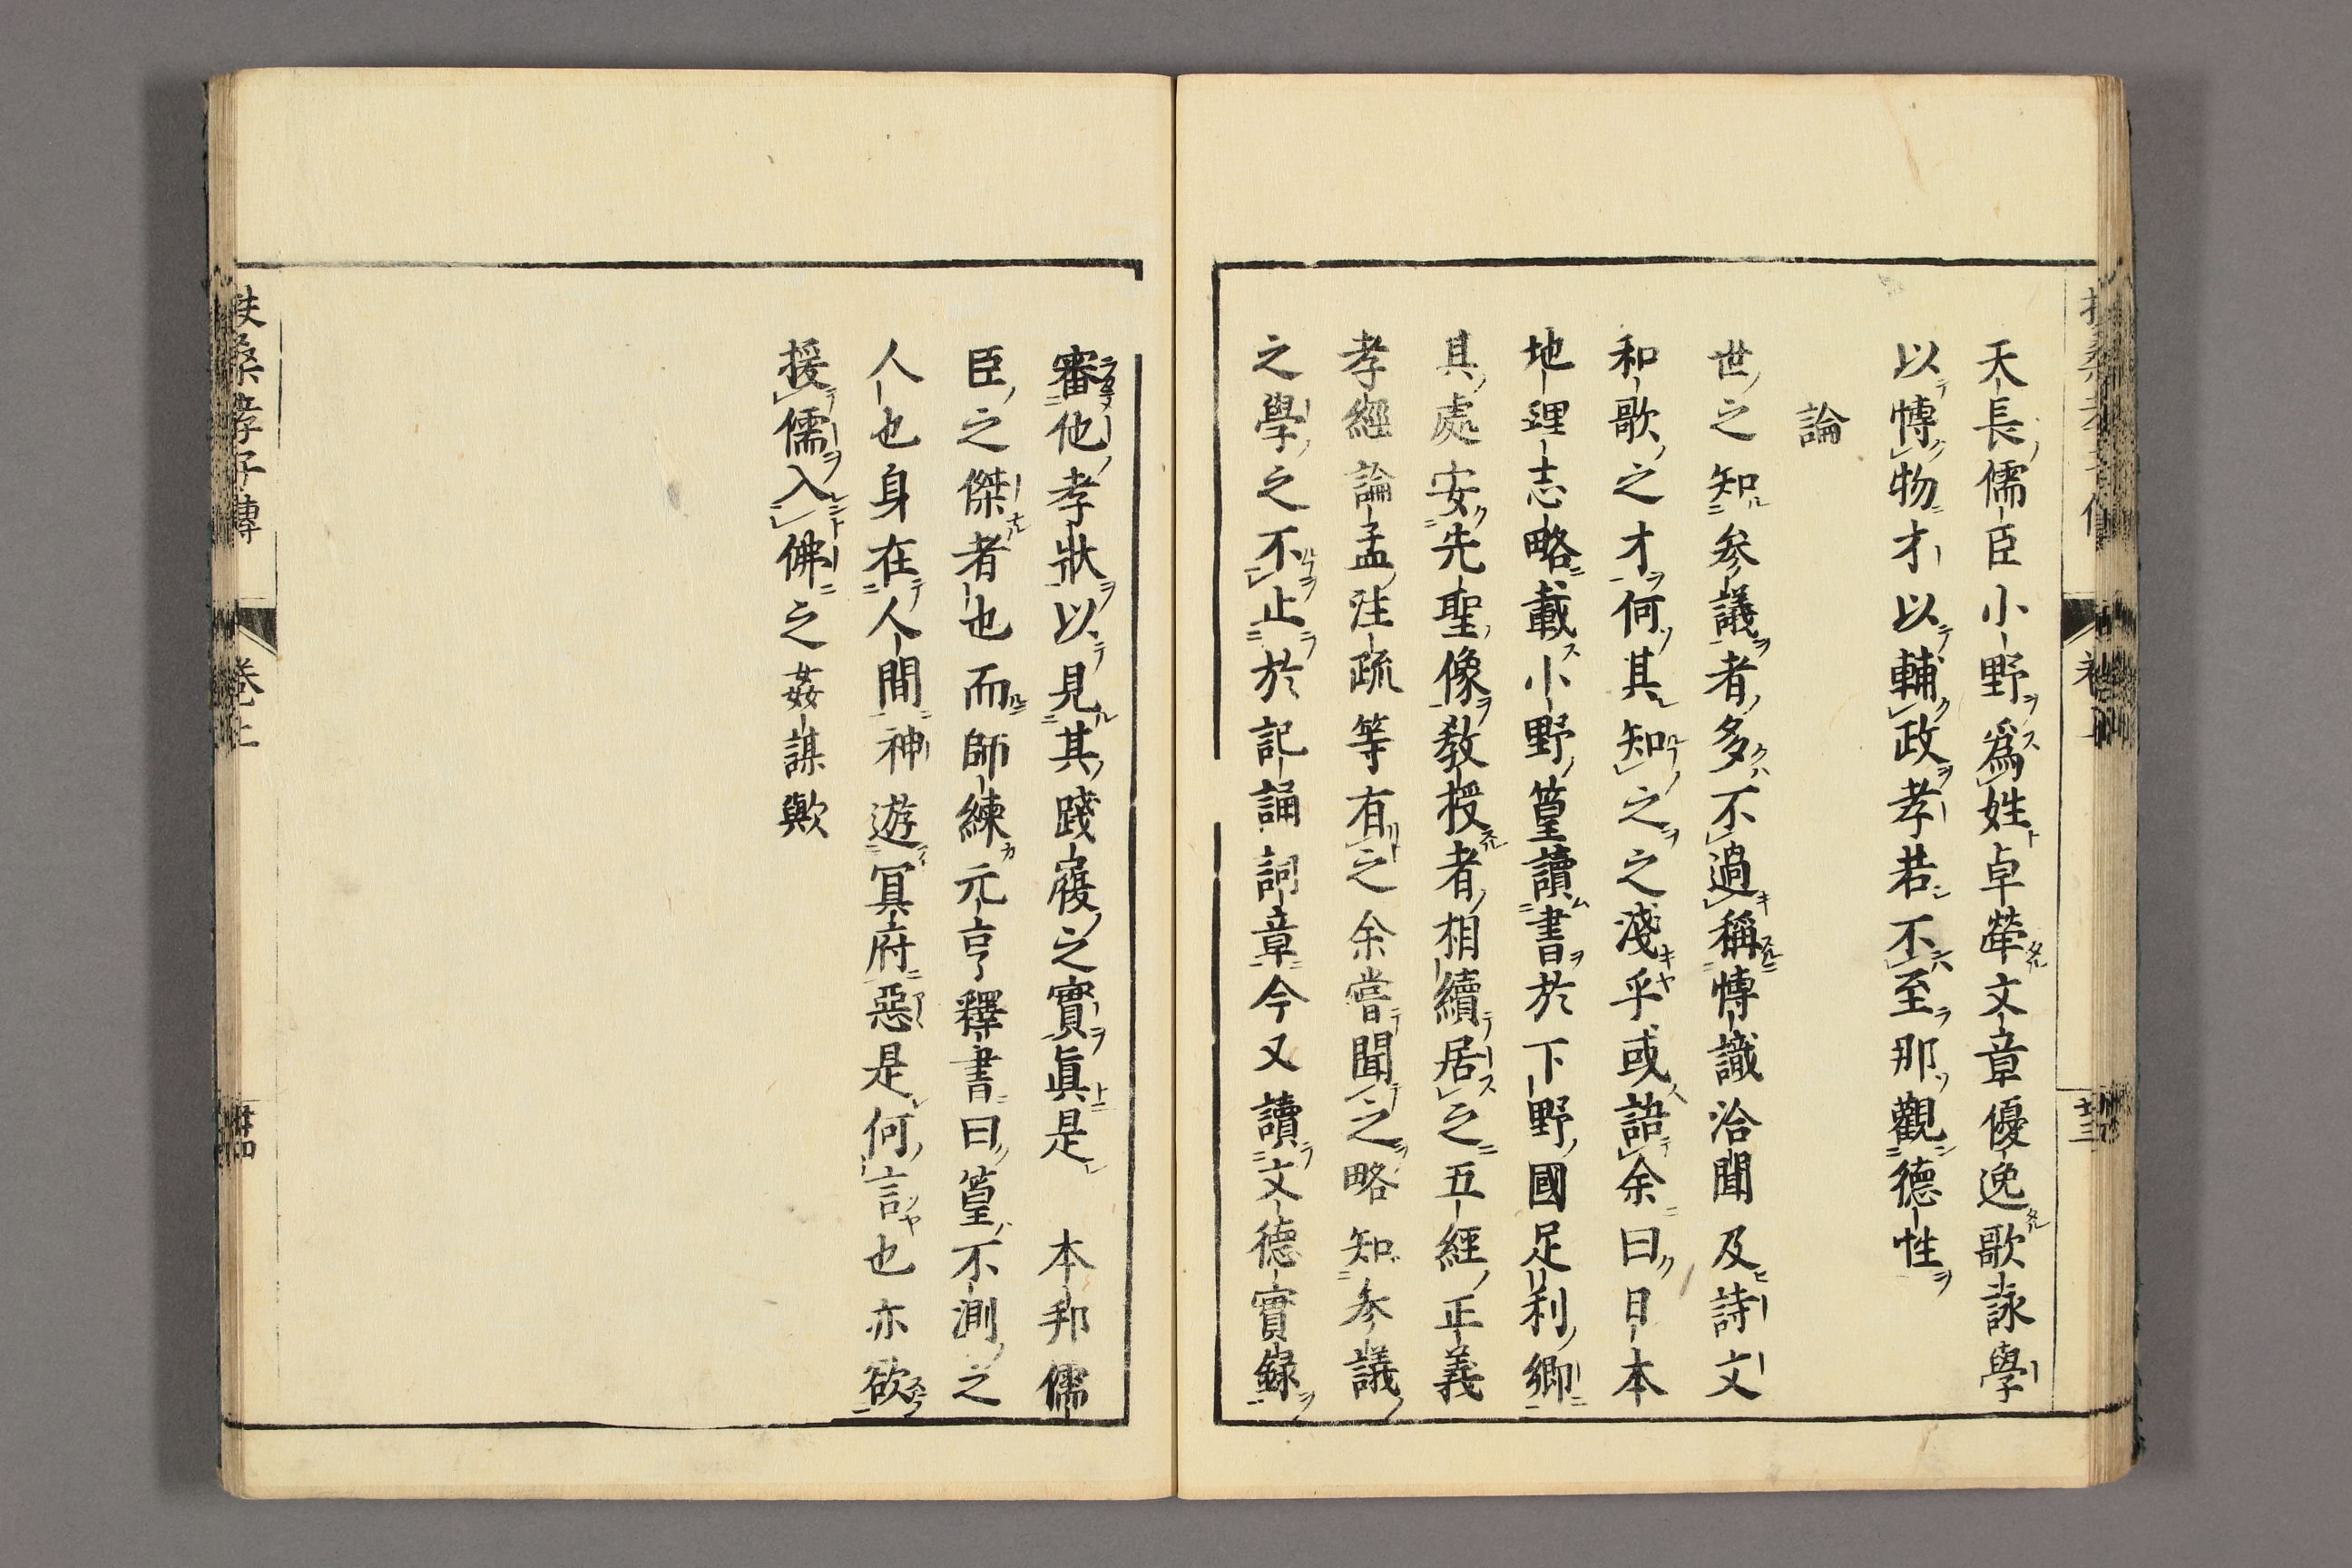 天長儒臣小野爲姓卓犖文章優逸歌詠學
以博物才以輔政孝若不至那觀德性
論
世之知參議者多不過稱博識洽聞及詩文
和歌之才何其知之之淺乎或語余曰日本
地理志略載小野篁讀書於下野國足利鄉
其處安先聖像敎授者相續居之五經正義
孝經論孟注疏等有之余嘗聞之略知參議
之學之不止於記誦詞章今又讀文德實錄
審他孝狀以見其踐履之實眞是 本邦儒
臣之傑者也而師練元亨釋書曰篁不測之
人也身在人間神遊冥府惡是何言也亦欲
援儒入佛之姦謀歟
扶桑孝子傳 卷上 廿四